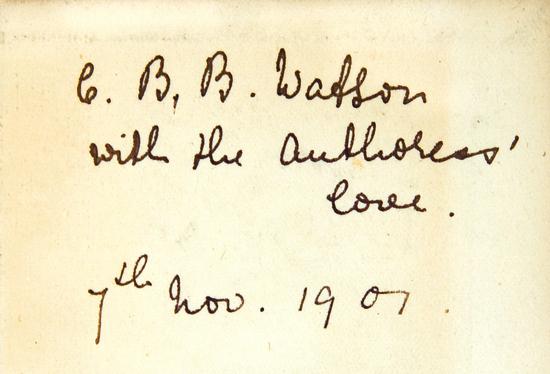 C. B. B. Watson
with the Authoress'
love.
7th Nov. 1907.